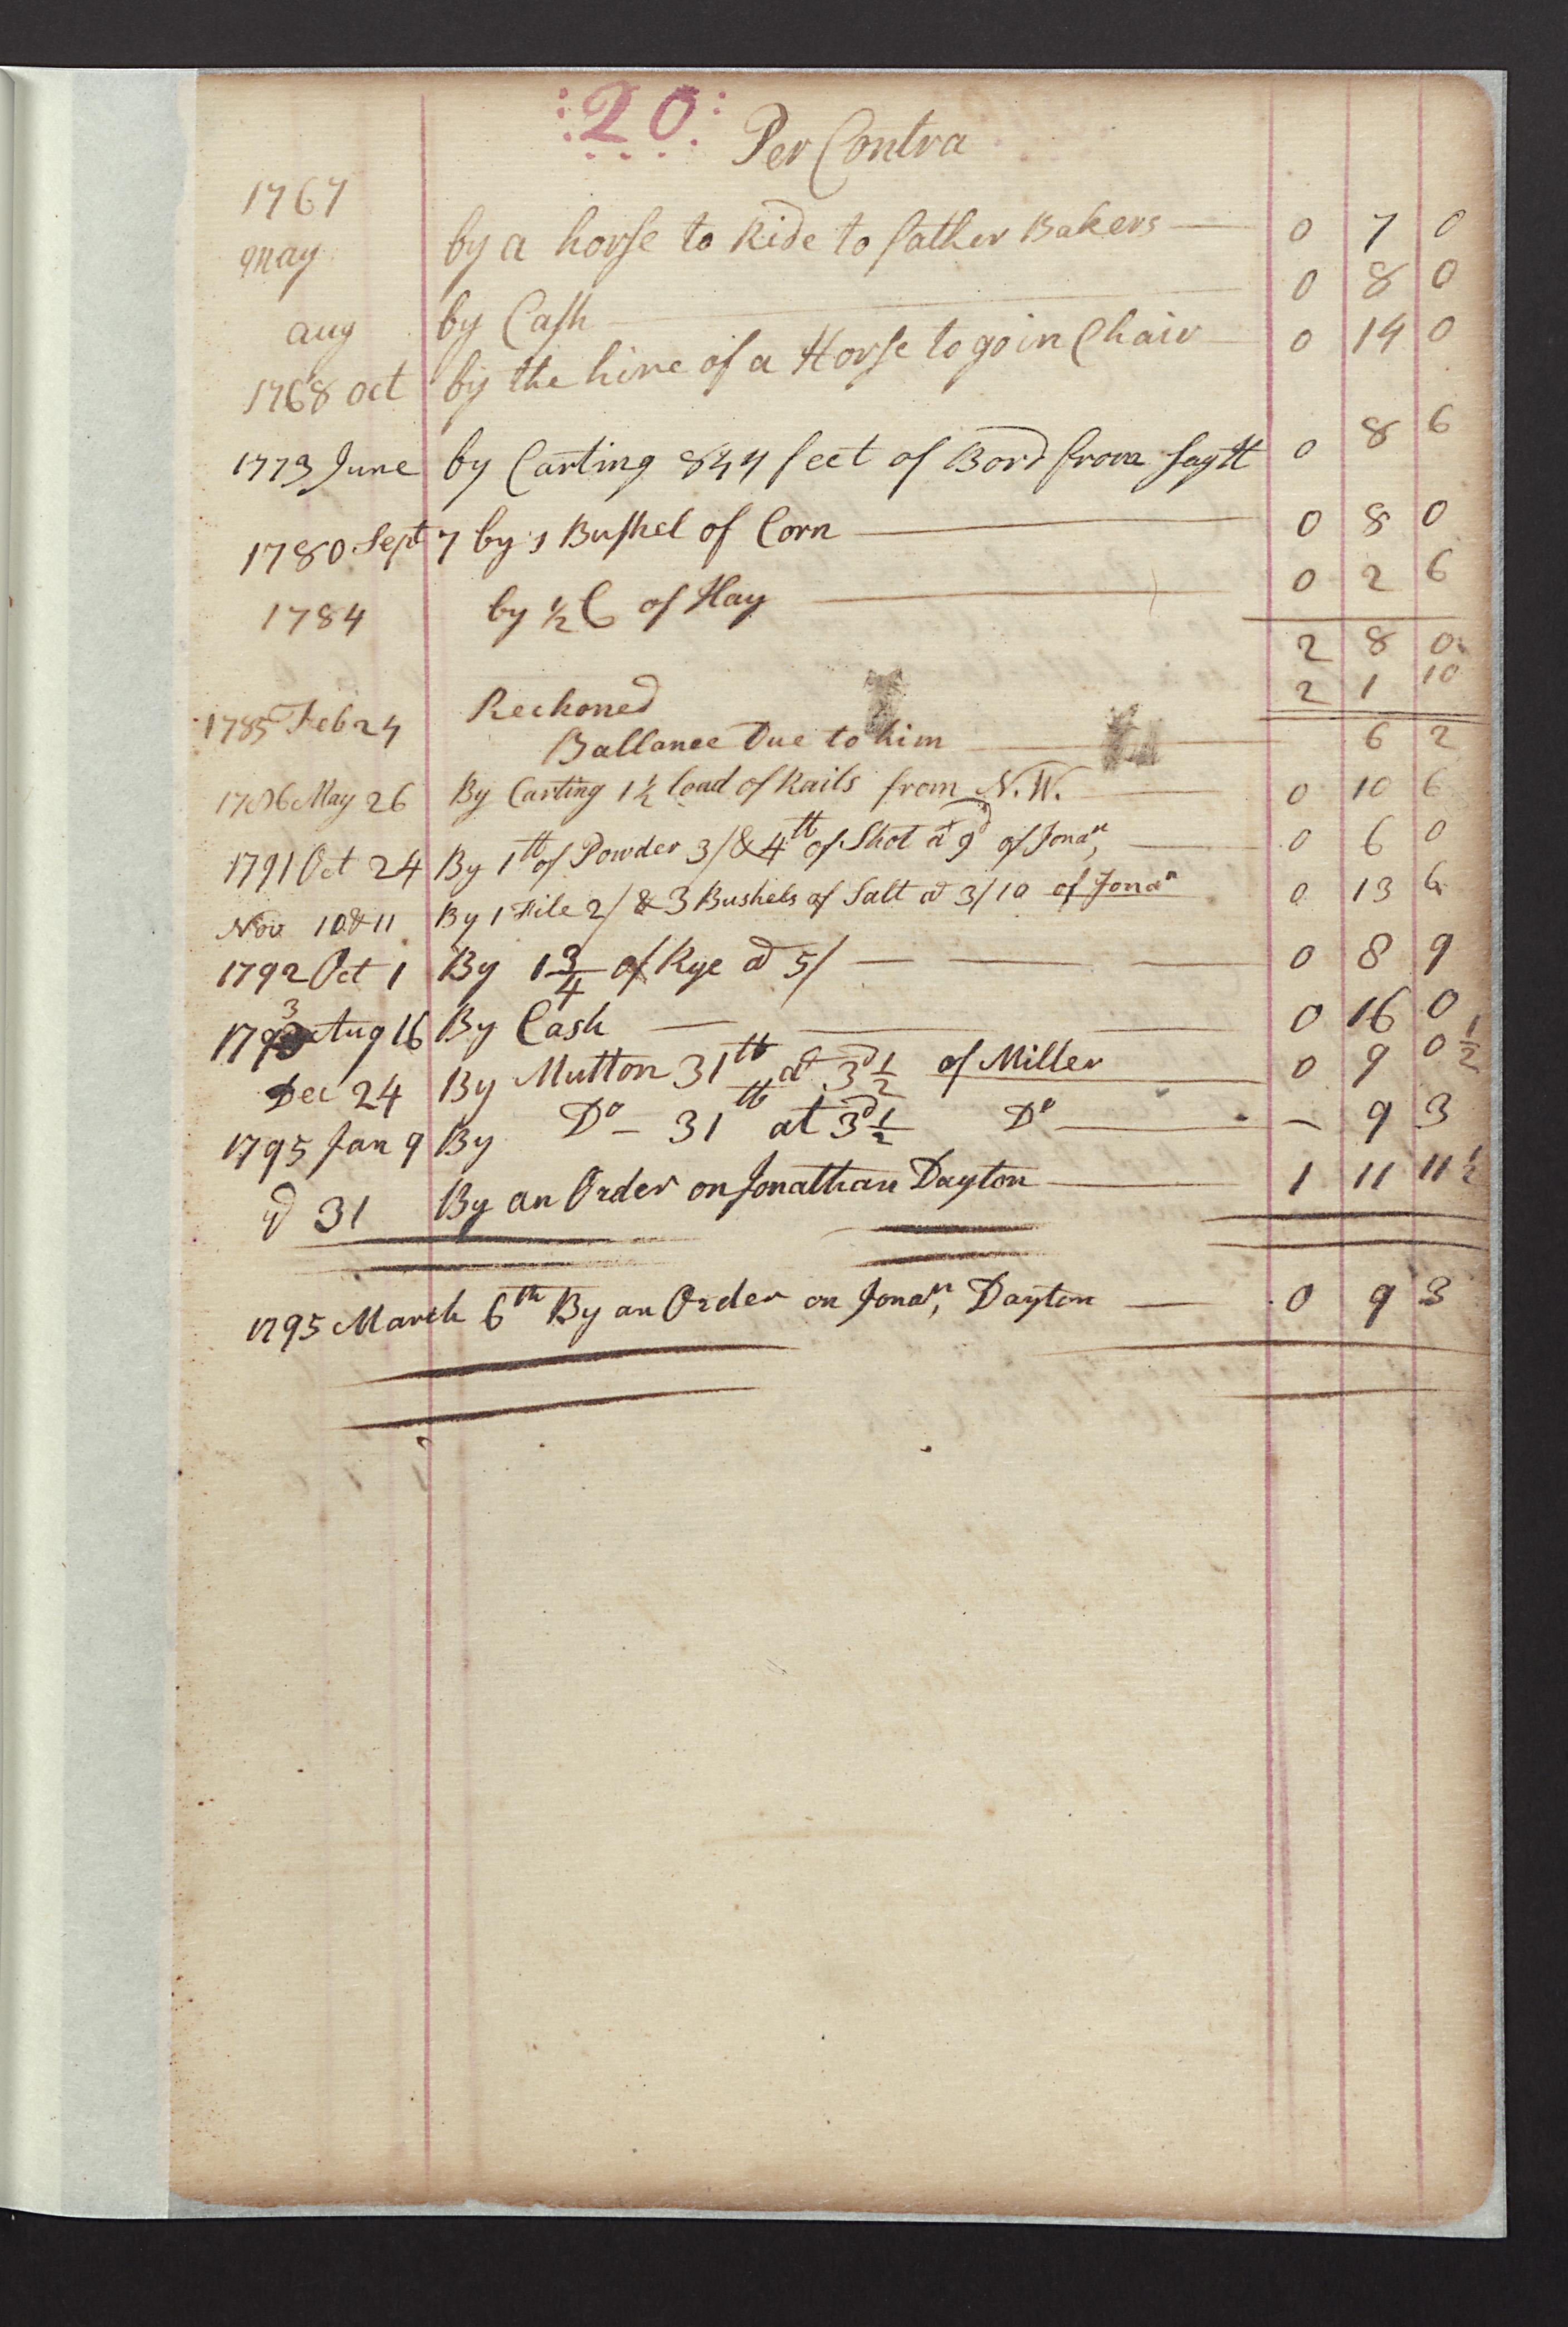 :20:
Per Contra
1767
may by a horse to Ride to father Bakers — 0 7 0
aug by Cash — 0 8 0
1768 oct by the hire of a Horse to go in Chair — 0 14 0
1773 June by Carting 844 feet of Bord from 0 8 6
1780 Sept 7 by 1 Bushel of Corn — 0 8 0
1784 by ½ C of Hay — 0 2 6
2 8 0
1785 Feb 24 Reckoned 2 1 10
Ballance Due to him — 6 2
1786 May 26 By Carting 1½ load of Rails from N. W. — 0 10 6
1791 Oct 24 By 1 lb of Powder 3/ & 4 lb of Shot at 9d of Jonan, — 0 6 0
Nov 10 & 11 By 1 File 2/ & 3 Bushels of Salt at 3/10 of Jonan 0 13 6
1792 Oct 1 By 1 3/4 of Rye at 5/ — — — 0 8 9
1793 Aug 16 By Cash — — — 0 16 0
Dec 24 By Mutton 31 lb at 3d ½ of Miller 0 9 0 ½
1795 Jan 9 By Do – 31 lb at 3d ½ Do — – 9 3
d 31 By an Order on Jonathan Dayton — 1 11 11 ½
1795 March 6th By an Order on Jonan, Dayton — 0 9 3